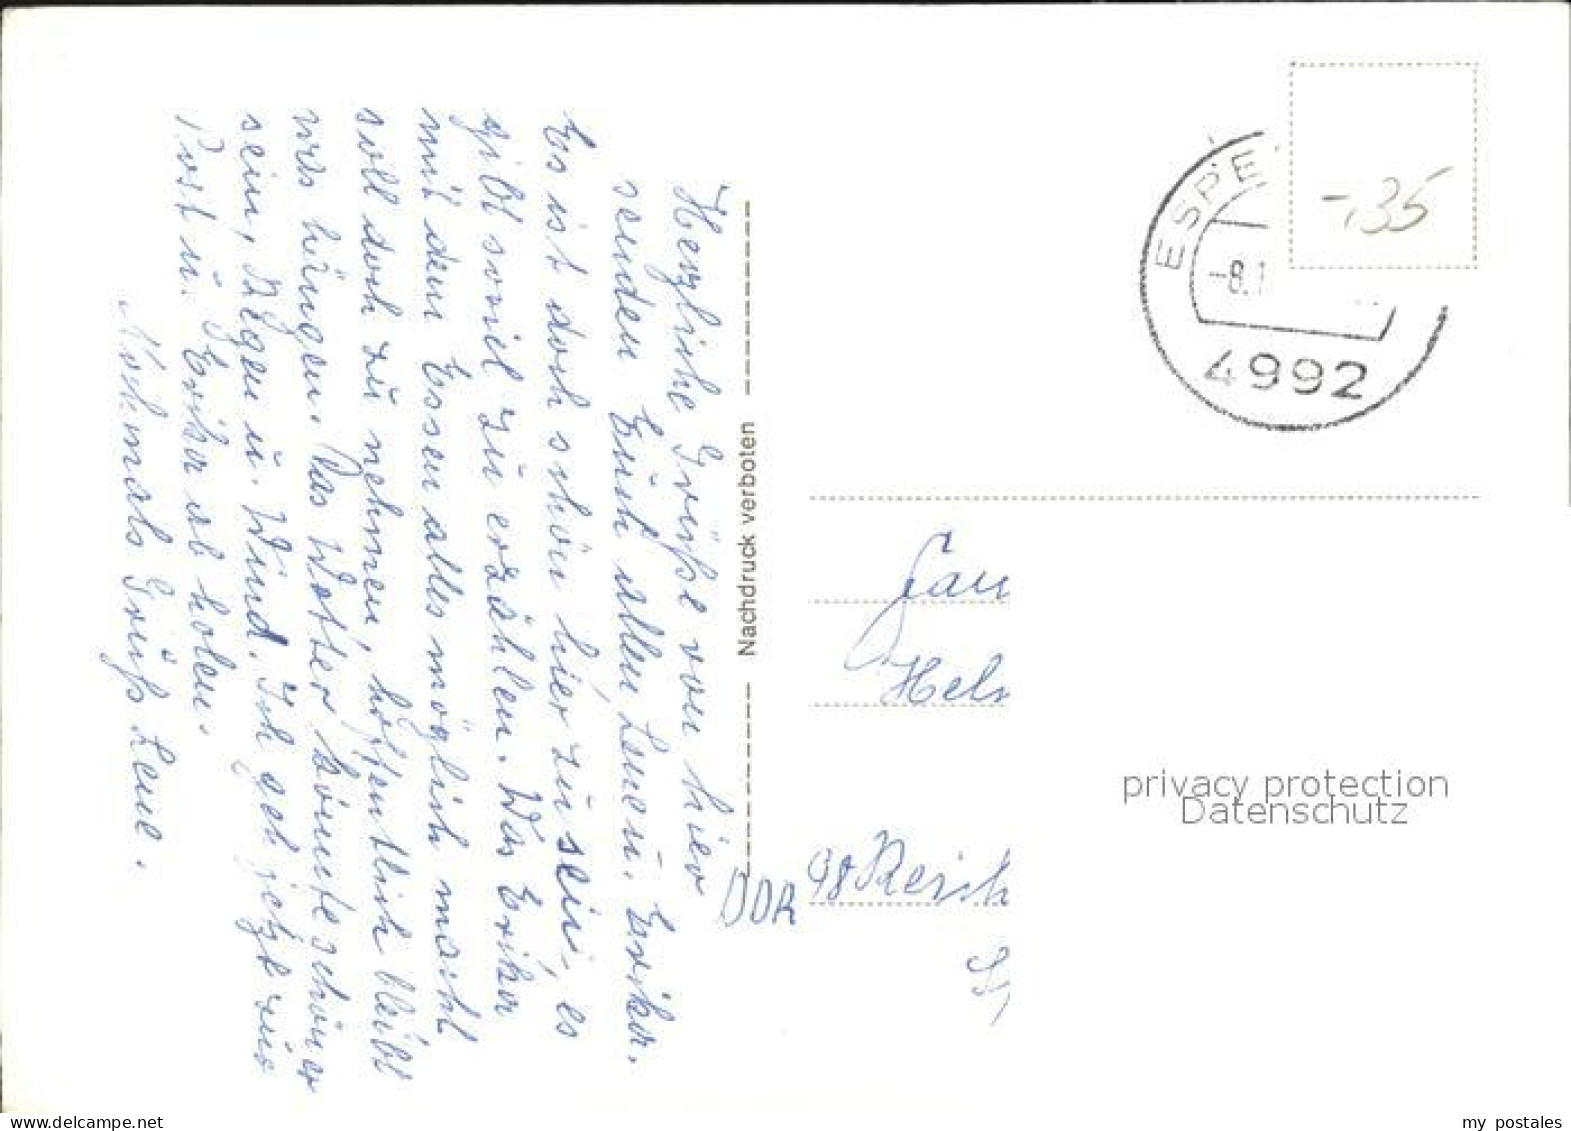 Herzliche Grüße von hier
senden Euch allen Lene u. Erika.
Es ist doch schön hier zu sein, es
gibt soviel zu erzählen. Was Erika
mit dem Essen alles möglich macht
soll doch zu nehmen, hoffentlich bleibt
was hängen. Das Wetter könnte schöner
sein, Regen u. Wind. Ich geh jetzt zur
Post u. Erika ab holen.
Nochmals Grüß Lene.
Nachdruck verboten
ESPE
-8.1
4992
-,35
Fam
Hel
DDR 98 Reich
privacy protection
Datenschutz
my postales